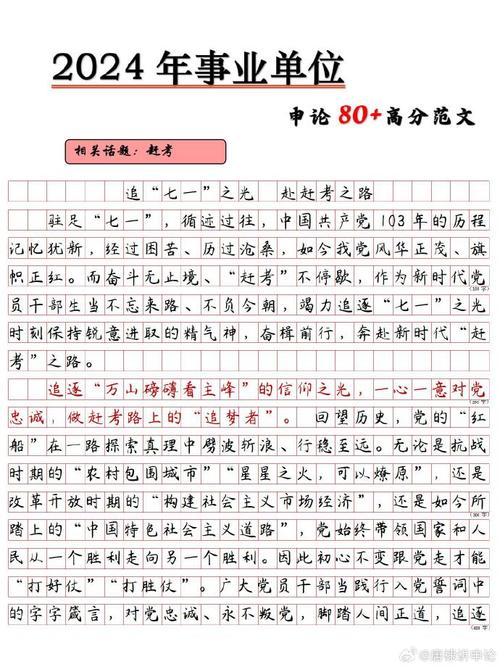 2024年事业单位
申论80+高分范文
相关话题：赶考
追“七一”之光 赴赶考之路
驻足“七一”，循迹过往，中国共产党103年的历程
记忆犹新，经过困苦、历过沧桑，如今我党风华正茂、旗
帜正红。而奋斗无止境、“赶考”不停歇，作为新时代党
员干部生当不忘来路、不负今朝，竭力追逐“七一”之光
时刻保持锐意进取的精气神，奋楫前行，奔赴新时代“赶
考”之路。
追逐“万山磅礴看主峰”的信仰之光，一心一意对党
忠诚，做赶考路上的“追梦者”。回望历史，党的“红
船”在一路探索真理中劈波斩浪、行稳至远。无论是抗战
时期的“农村包围城市”“星星之火，可以燎原”，还是
改革开放时期的“构建社会主义市场经济”，还是如今所
踏上的“中国特色社会主义道路”，党始终带领国家和人
民从一个胜利走向另一个胜利。因此初心不变跟党走才能
“打好仗”“打胜仗”。广大党员干部当践行入党誓词中
的字字箴言，对党忠诚、永不叛党，脚踏人间正道，追逐